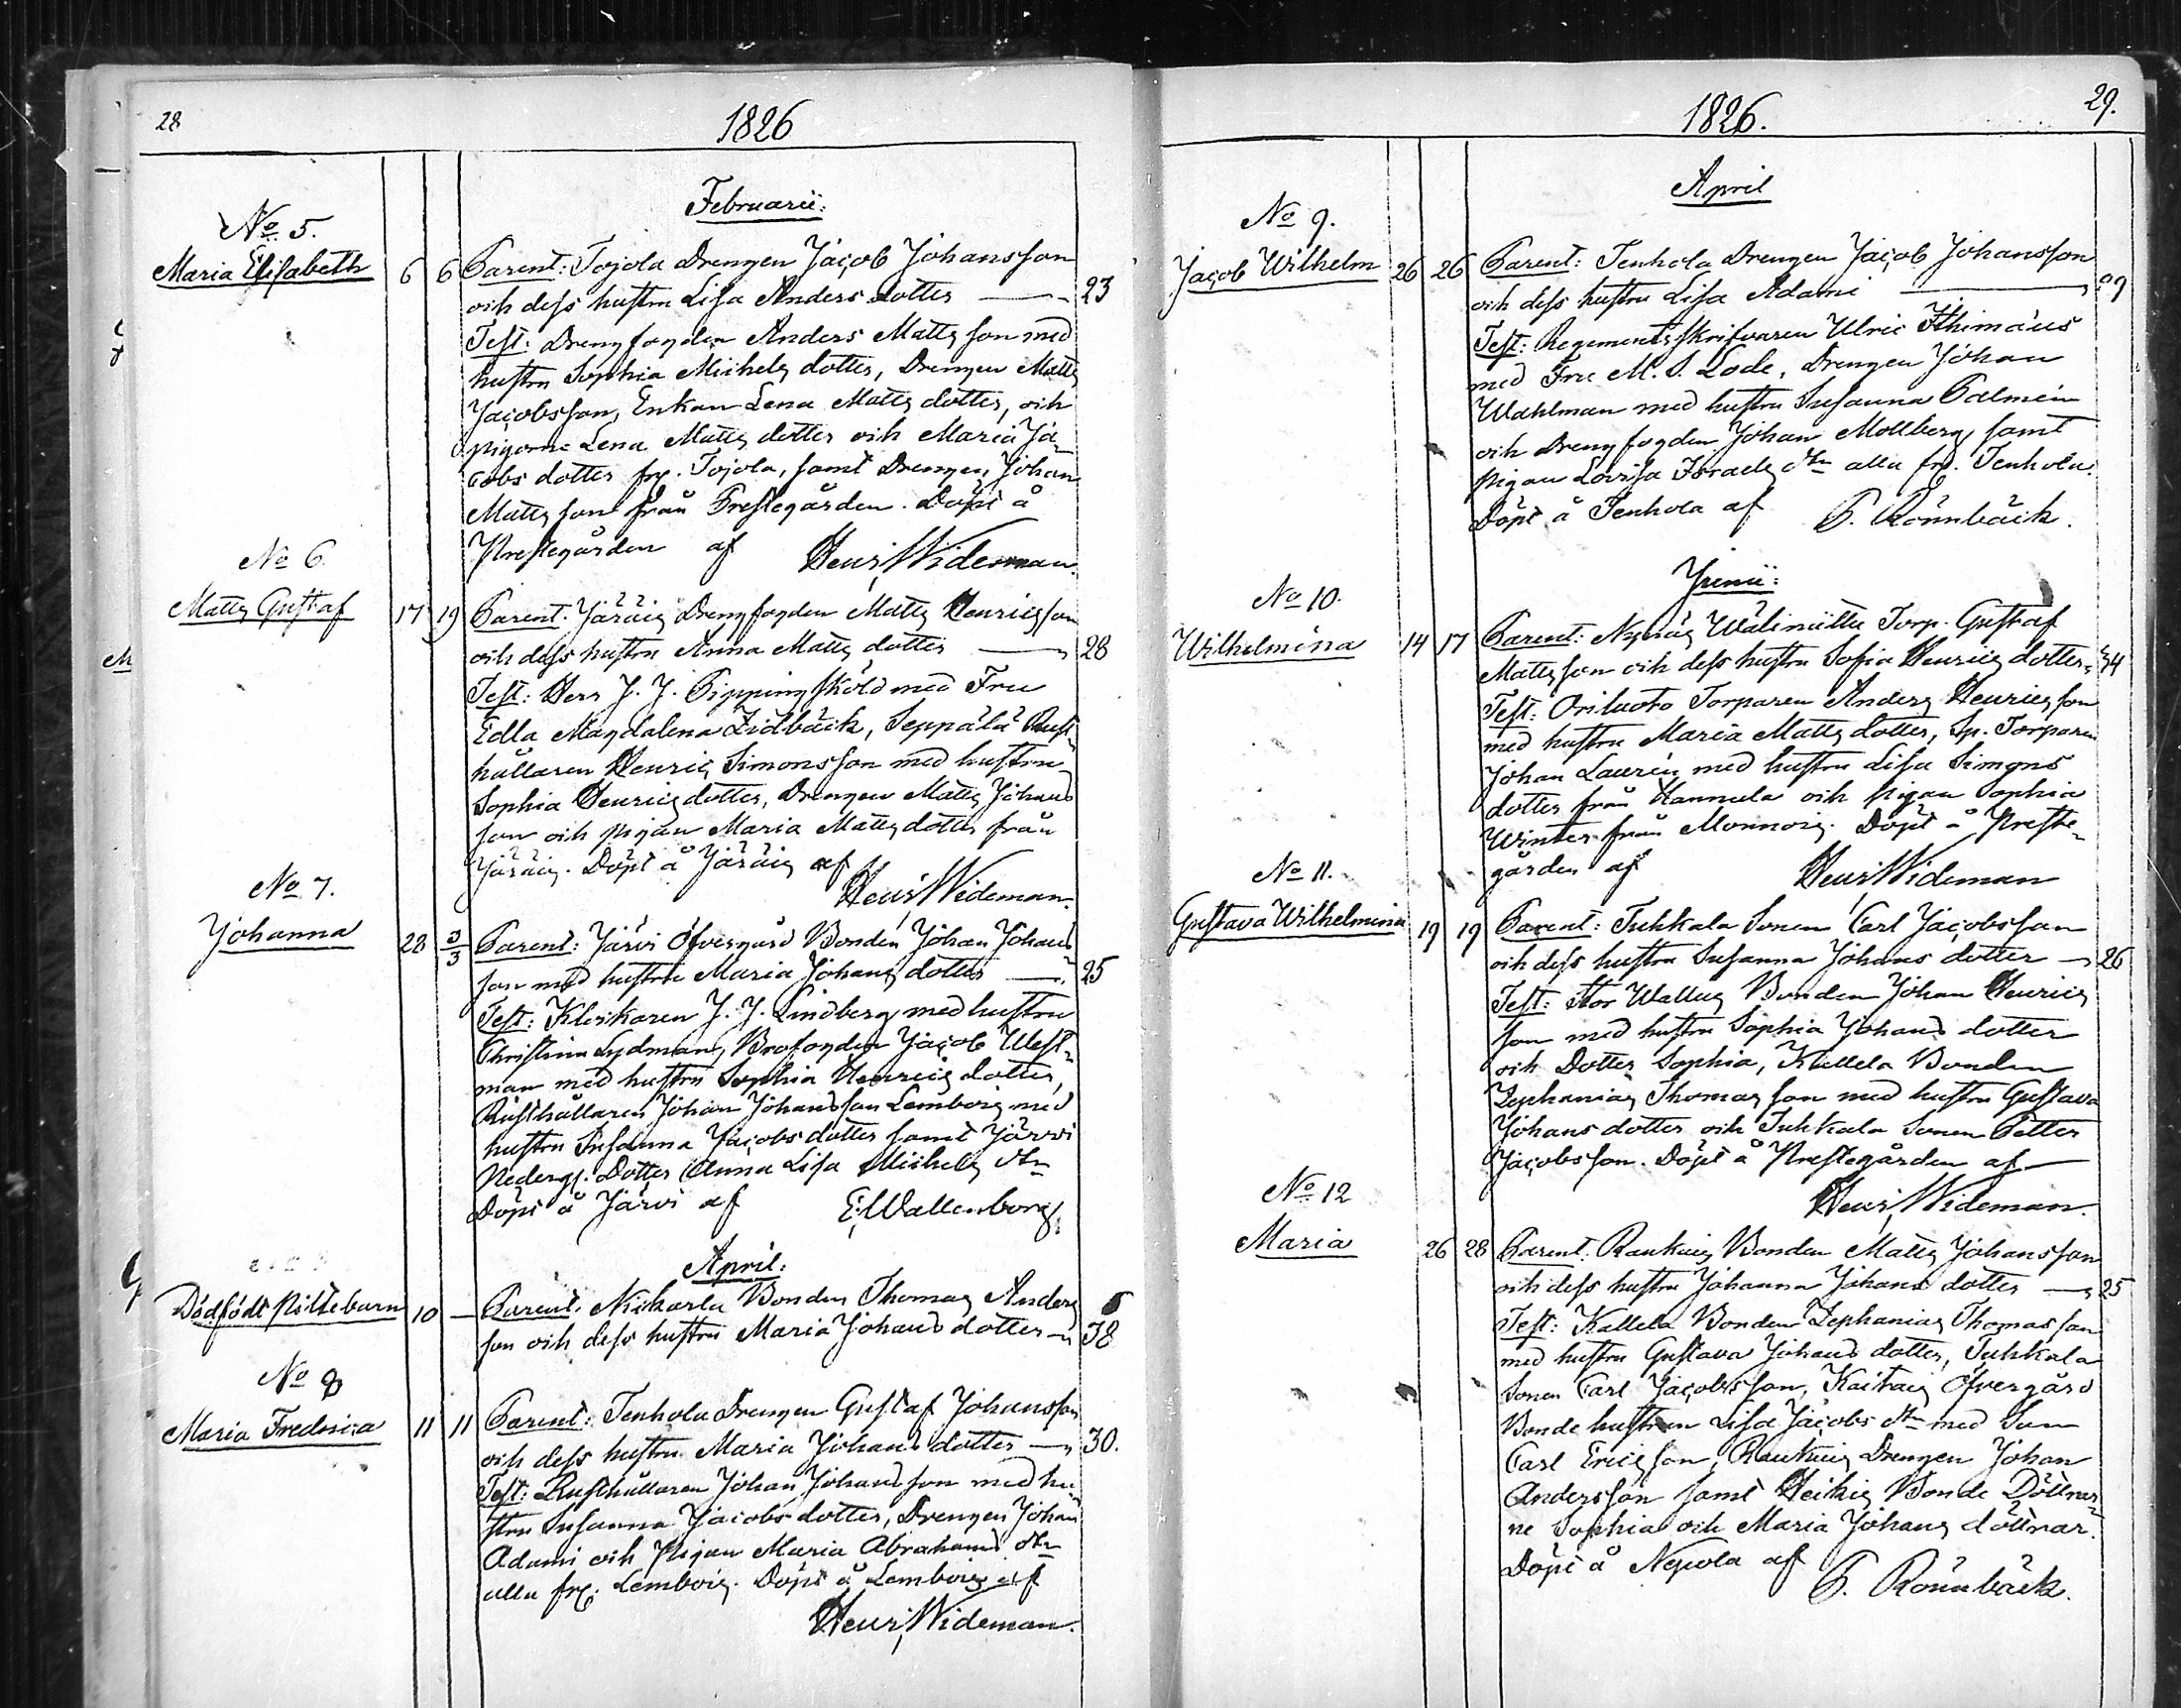 28
1826
Februarii:
No 5.
Maria Elisabeth 6 6 Parent: Tojola Drengen Jacob Johansson
och dess hustru Lisa Anders dotter — 23
Test: Drengfogden Anders Mattsson med
hustru Sophia Michels dotter, Drengen Matts
Jacobsson, Enkan Lena Matts dotter, och
pigorne Lena Matts dotter och Maria Ja-
cobs dotter fr. Tojola, samt Drengen Johan
Mattsson från Prestegården. Döpt å
Prestegården af Henr: Wideman.
No 6.
Matts Gustaf 17 19 Parent: Järäis Drengfogden Matts Henricsson
och dess hustru Anna Matts dotter — 28
Test: Herr J. J. Pippingsköld med Fru
Edla Magdalena Zidbäck, Seppälä Rust-
hållaren Henric Simonsson med hustru
Sophia Henrics dotter, Drengen Matts Johans
son och pigan Maria Matts dotter från
Järäis. Döpt å Järäis af
Henr: Wideman.
No 7.
Johanna 28 3/3 Parent: Järvi Öfvergård Bonden Johan Johans
son med hustru Maria Johans dotter — 25
Test: Klockaren J. J. Lindberg med hustru
Christina Sydman, Brofogden Jacob West-
man med hustru Sophia Henrics dotter,
Rusthållaren Johan Johansson Lembois med
hustru Susanna Jacobs dotter samt Järvi
Nederg. Dotter Anna Lisa Michels dtr
Döpt å Järvi af E: Wallenborg.
April:
Dödfödt Pilttebarn 10 — Parent: Nickarla Bonden Thomas Anders
son och dess hustru Maria Johans dotter — 38
No 8
Maria Fredrica 11 11 Parent: Tenhola Drengen Gustaf Johansson
och dess hustru Maria Johans dotter — 30.
Test: Rusthållaren Johan Johansson med hu-
stru Susanna Jacobs dotter, Drengen Johan
Adami och Pigan Maria Abrahams dtr
alla fr. Lembois. Döpt å Lembois af
Henr: Wideman.
29.
1826.
April
No 9.
Jacob Wilhelm 26 26 Parent: Tenhola Drengen Jacob Johansson
och dess hustru Lisa Adami —
Test: Regementsskrifvaren Ulric Ithimæus
med Fru M. S. Lode, Drengen Johan
Wahlman med hustru Susanna Palmén
och Drengfogden Johan Mollberg samt
pigan Lovisa Israels dtr alla fr. Tenhola.
Döpt å Tenhola af P. Rönnbäck.
Junii:
No 10.
Wilhelmina 14 17 Parent: Nynäs Wälimitte Torp. Gustaf
Mattsson och dess hustru Sofia Henrics dotter 34
Test: Oriluoto Torparen Anders Henricsson
med hustru Maria Matts dotter, Sp. Torparen
Johan Laurén med hustru Lisa Simons
dotter från Hannula och pigan Sophia
Winter från Monnois. Döpt å Preste-
gården af Henr: Wideman
No 11.
Gustava Wilhelmina 19 19 Parent: Tuhkala Sonen Carl Jacobsson
och dess hustru Susanna Johans dotter — 26
Test: Stor Wallus Bonden Johan Henrics
son med hustru Sophia Johans dotter
och Dotter Sophia, Kallela Bonden
Zephanias Thomasson med hustru Gustava
Johans dotter och Tuhkala Sonen Petter
Jacobsson. Döpt å Prestegården af —
Henr: Wideman.
No 12
Maria 26 28 Parent: Raukuis Bonden Matts Johansson
och dess hustru Johanna Johans dotter — 25
Test: Kallela Bonden Zephanias Thomasson
med hustru Gustava Johans dotter, Tuhkala
Sonen Carl Jacobsson, Kaitais Öfvergård
Bonde hustrun Lisa Jacobs dtr med Son
Carl Ericsson, Raukuis Drengen Johan
Andersson samt Heikis Bonde Döttrar-
ne Sophia och Maria Johans döttrar.
Döpt å Nepola af P. Rönnbäck.